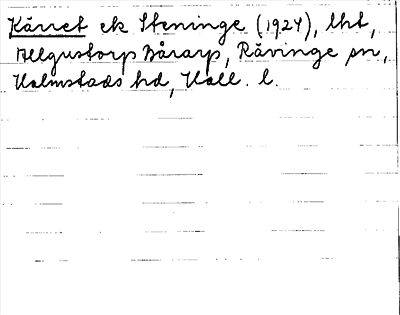 Kärret ek Steninge (1924), lht,
Allgustorp Bårarp, Rävinge sn,
Halmstads hd, Hall. l.